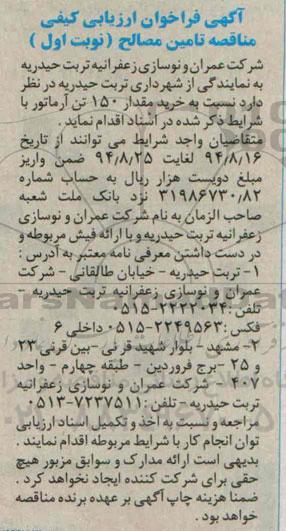 آگهی فراخوان ارزیابی کیفی
مناقصه تامین مصالح (نوبت اول)
شرکت عمران و نوسازی زعفرانیه تربت حیدریه
به نمایندگی از شهرداری تربت حیدریه در نظر
دارد نسبت به خرید مقدار ۱۵۰ تن آرماتور با
شرایط ذکر شده در اسناد اقدام نماید.
متقاضیان واجد شرایط می توانند از تاریخ
۹۴/۸/۱۶ لغایت ۹۴/۸/۲۵ ضمن واریز
مبلغ دویست هزار ریال به حساب شماره
۳۱۹۸۶۷۳۰/۸۲ نزد بانک ملت شعبه
صاحب الزمان به نام شرکت عمران و نوسازی
زعفرانیه تربت حیدریه و با ارائه فیش مربوطه و
در دست داشتن معرفی نامه معتبر به آدرس :
۱- تربت حیدریه - خیابان طالقانی - شرکت
عمران و نوسازی زعفرانیه تربت حیدریه -
تلفن: ۲۲۲۲۰۳۴-۰۵۱۵
فکس: ۲۲۴۹۵۶۳-۰۵۱۵ داخلی ۶
۲- مشهد - بلوار شهید قرنی - بین قرنی ۲۳
و ۲۵ - برج فروردین - طبقه چهارم - واحد
۴۰۷ - شرکت عمران و نوسازی زعفرانیه
تربت حیدریه - تلفن: ۷۲۳۷۵۱۱-۰۵۱۳
مراجعه و نسبت به أخذ و تکمیل اسناد ارزیابی
توان انجام کار با شرایط مربوطه اقدام نمایند.
بدیهی است ارائه مدارک و سوابق مزبور هیچ
حقی برای شرکت کننده ایجاد نخواهد کرد.
ضمنا هزینه چاپ آگهی بر عهده برنده مناقصه
خواهد بود.